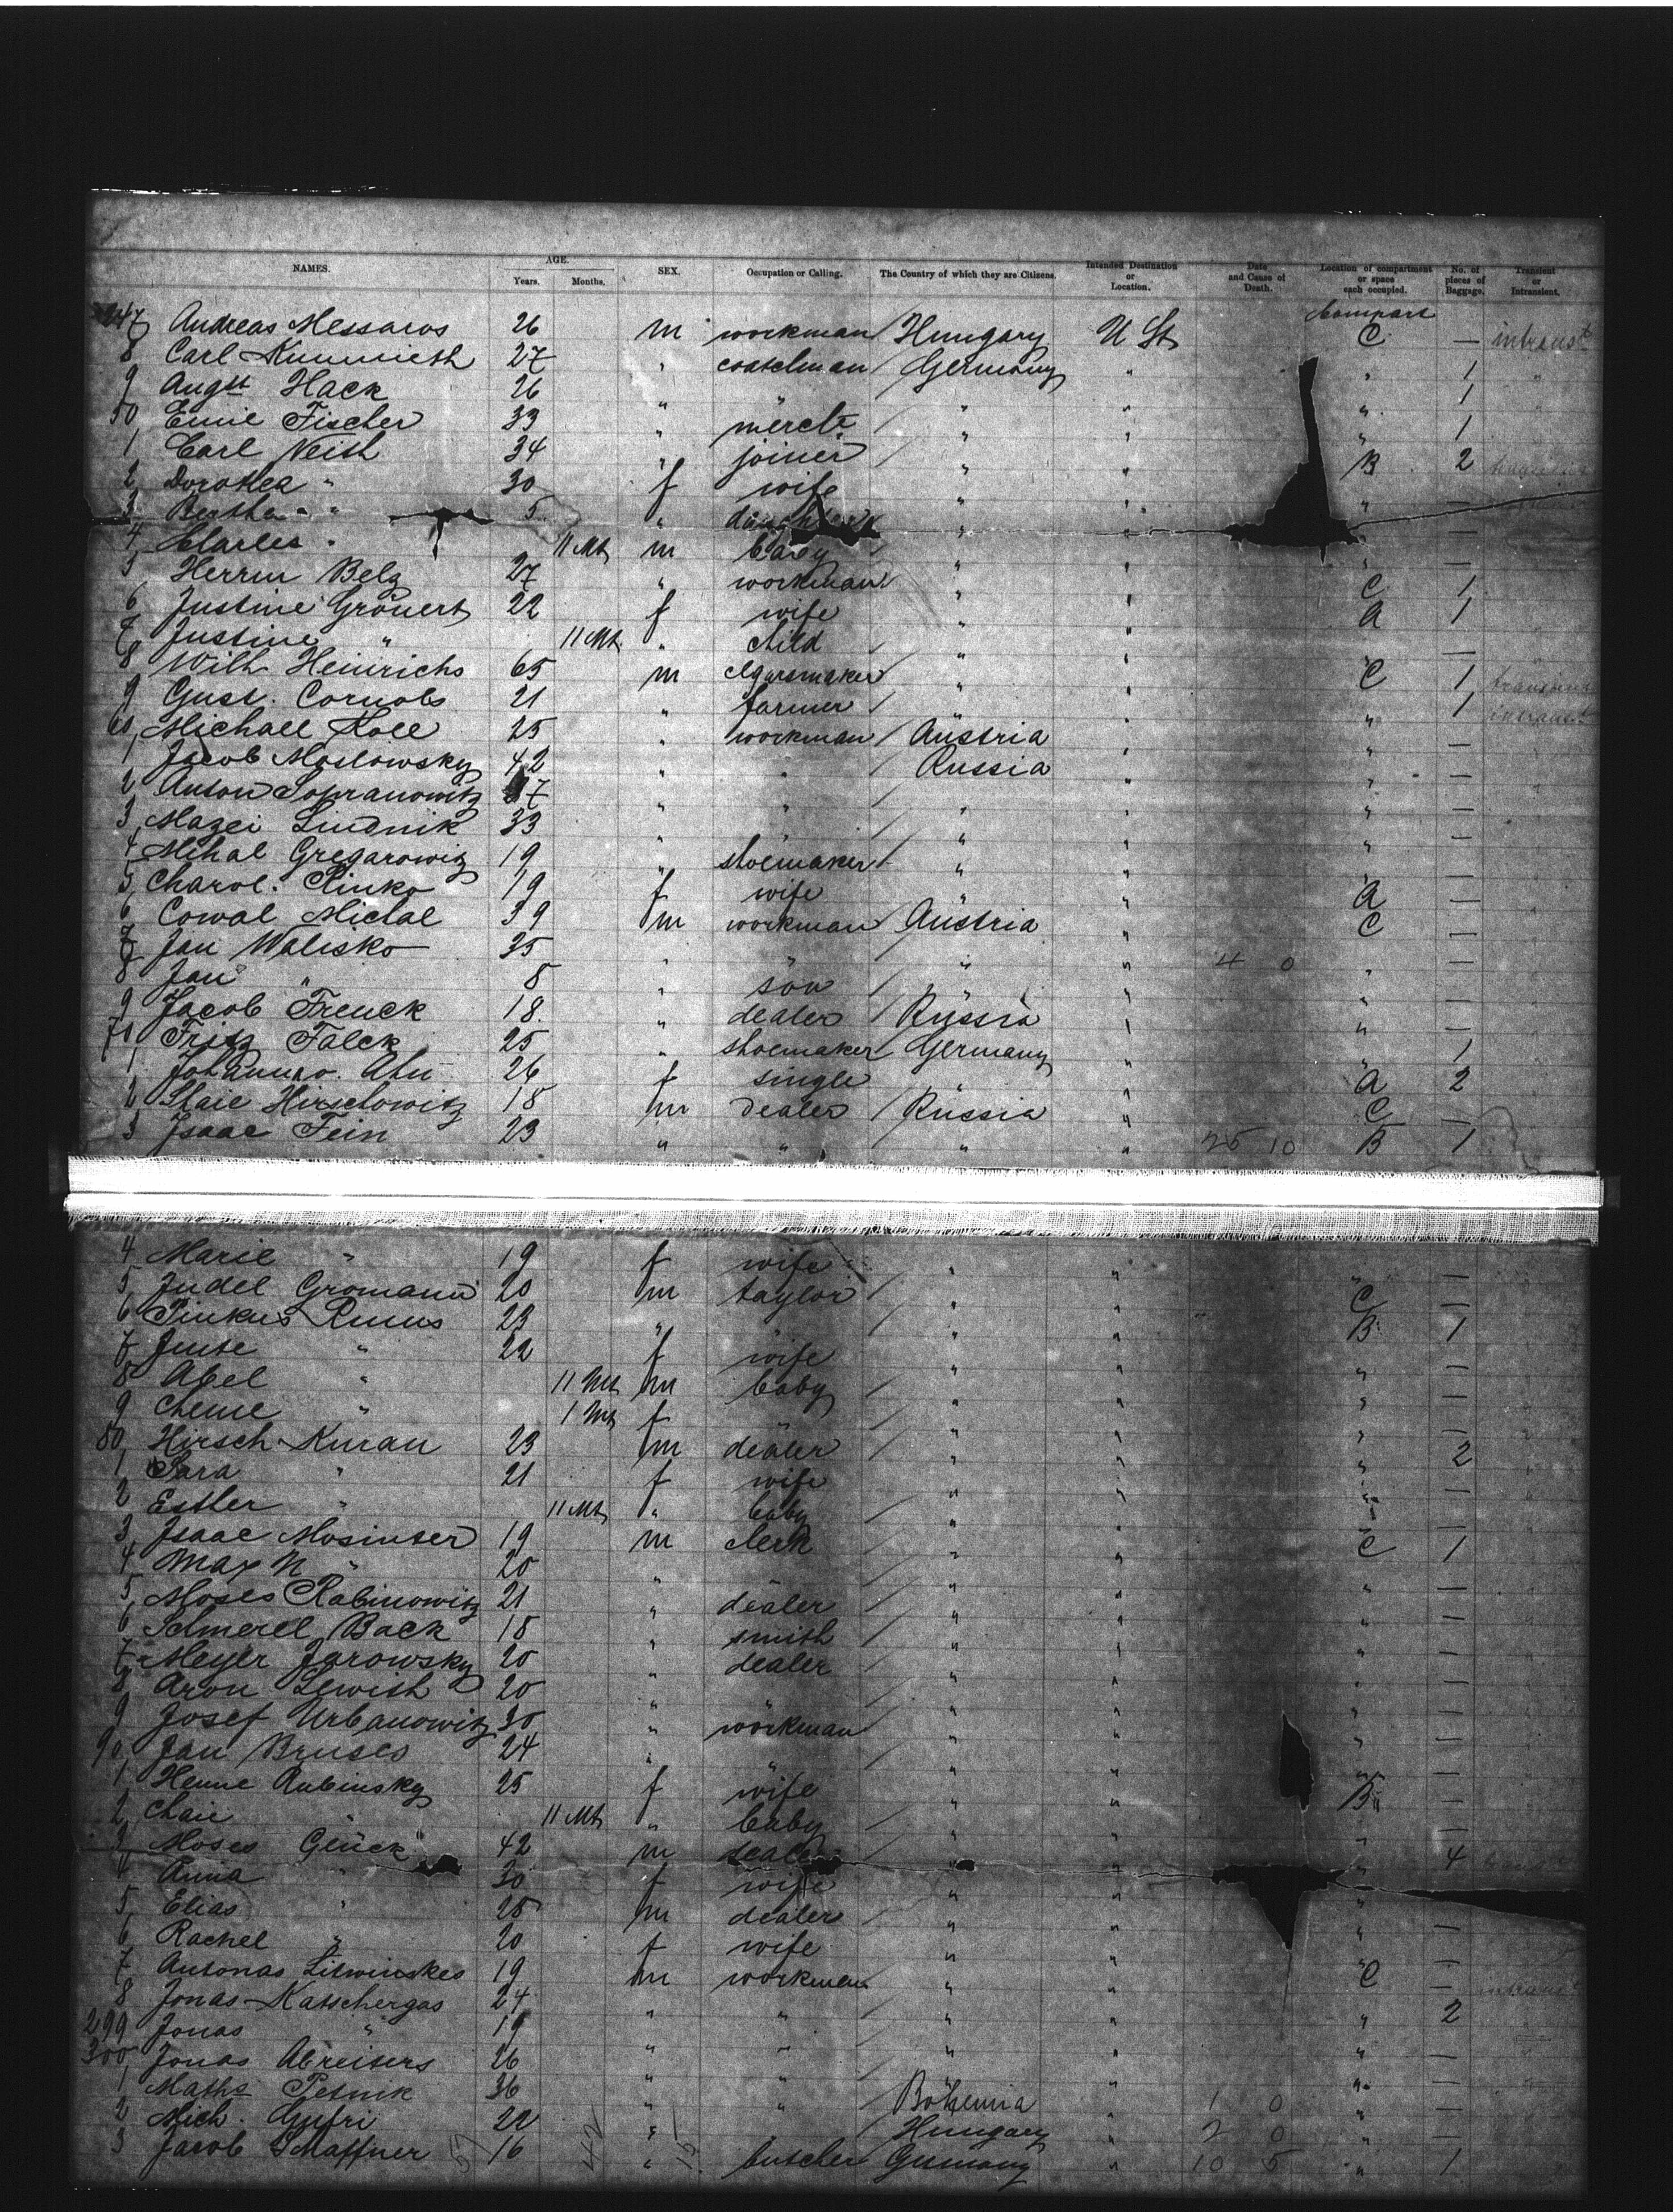 NAMES. AGE. Years. Months. SEX. Occupation or Calling. The Country of which they are Citizens. Intended Destination or Location. Date and Cause of Death. Location of compartment or space each occupied. No. of pieces of Baggage. Transient or Intransient.
Compart
247 Andreas Messaros 26 m workman Hungary U St C — intranst
8 Carl 27 " Germany " " 1 "
9 Augst Hack 26 " " " " " 1
50 Emil Fischer 33 " " " " 1
1 Carl Veith 34 " joiner " " B 2
2 Dorothea " 30 f wife " " " —
3 Bertha " 5 " daughter " " " —
4 Charles " 11 Mt m baby " " " —
5 Herrm Belz 27 " workman " " C 1
6 Justine Grönert 22 f wife " " A 1
7 Justine " 11 Mt " child " " " —
8 Wilh Heinrichs 65 m cigarsmaker " " C 1
9 Gust. 21 " farmer " " " 1 intranst
60 Michael Koll 25 " workman Austria " " —
1 Jacob Moslowsky 42 " " Russia " " —
2 Anton Sopranowitz 37 " " " " " —
3 Mazei Lindnik 33 " " " " " —
4 Mihal Gregarowitz 19 " shoemaker " " " —
5 Charol. Pinko 19 f wife " " A —
6 Cowal Michal 39 m workman Austria " C —
7 Jan Walisko 35 " " " " 4 0 " —
8 Jan " 8 " son " " " —
9 Jacob Frenck 18 " dealer Russia " " —
70 Fritz Falck 25 " shoemaker Germany " " 1
1 26 f single " " A 2
2 Hirschowitz 18 m dealer Russia " C —
3 Isaac Fein 23 " " " " 25 10 B 1
4 Marie " 19 f wife " " " —
5 Judel Gromann 20 m taylor " " C —
6 Pinkus 23 " " " " B 1
7 " 22 f wife " " " —
8 Abel " 11 Mt m baby " " " —
9 " 1 Mt f " " " " —
80 Hirsch Kuran 23 m dealer " " " 2
1 Sara " 21 f wife " " " —
2 Esther " 11 Mt " baby " " " —
3 Isaac Mosinser 19 m clerk " " C 1
4 Max N " 20 " " " " " —
5 Moses Rabinowitz 21 " dealer " " " —
6 Schmerel Back 18 " smith " " " —
7 Meyer Jarowsky 20 " dealer " " " —
8 Aron Lewish 20 " " " " " —
9 Josef Urbanowitz 30 " workman " " " —
90 Jan Bruses 24 " " " " " —
1 Henne Rubinsky 25 f wife " " B —
2 Chaie " 11 Mt " baby " " " —
3 Moses Glück 42 m dealer " " " 4
4 Anna " 30 f wife " " "
5 Elias " 28 m dealer " " " —
6 Rachel " 20 f wife " " " —
7 Antonas Litwinskes 19 m workman " " C — intranst
8 Jonas Katschergas 24 " " " " " 2
299 Jonas " 19 " " " " " —
300 Jonas Abreisers 26 " " " " " —
1 Maths Petnik 36 " " Bohemia " 1 0 " —
2 Mich. Gufri 22 " Hungary " 2 0 " —
3 Jacob Schaffner 16 " butcher Germany " 10 5 " 1